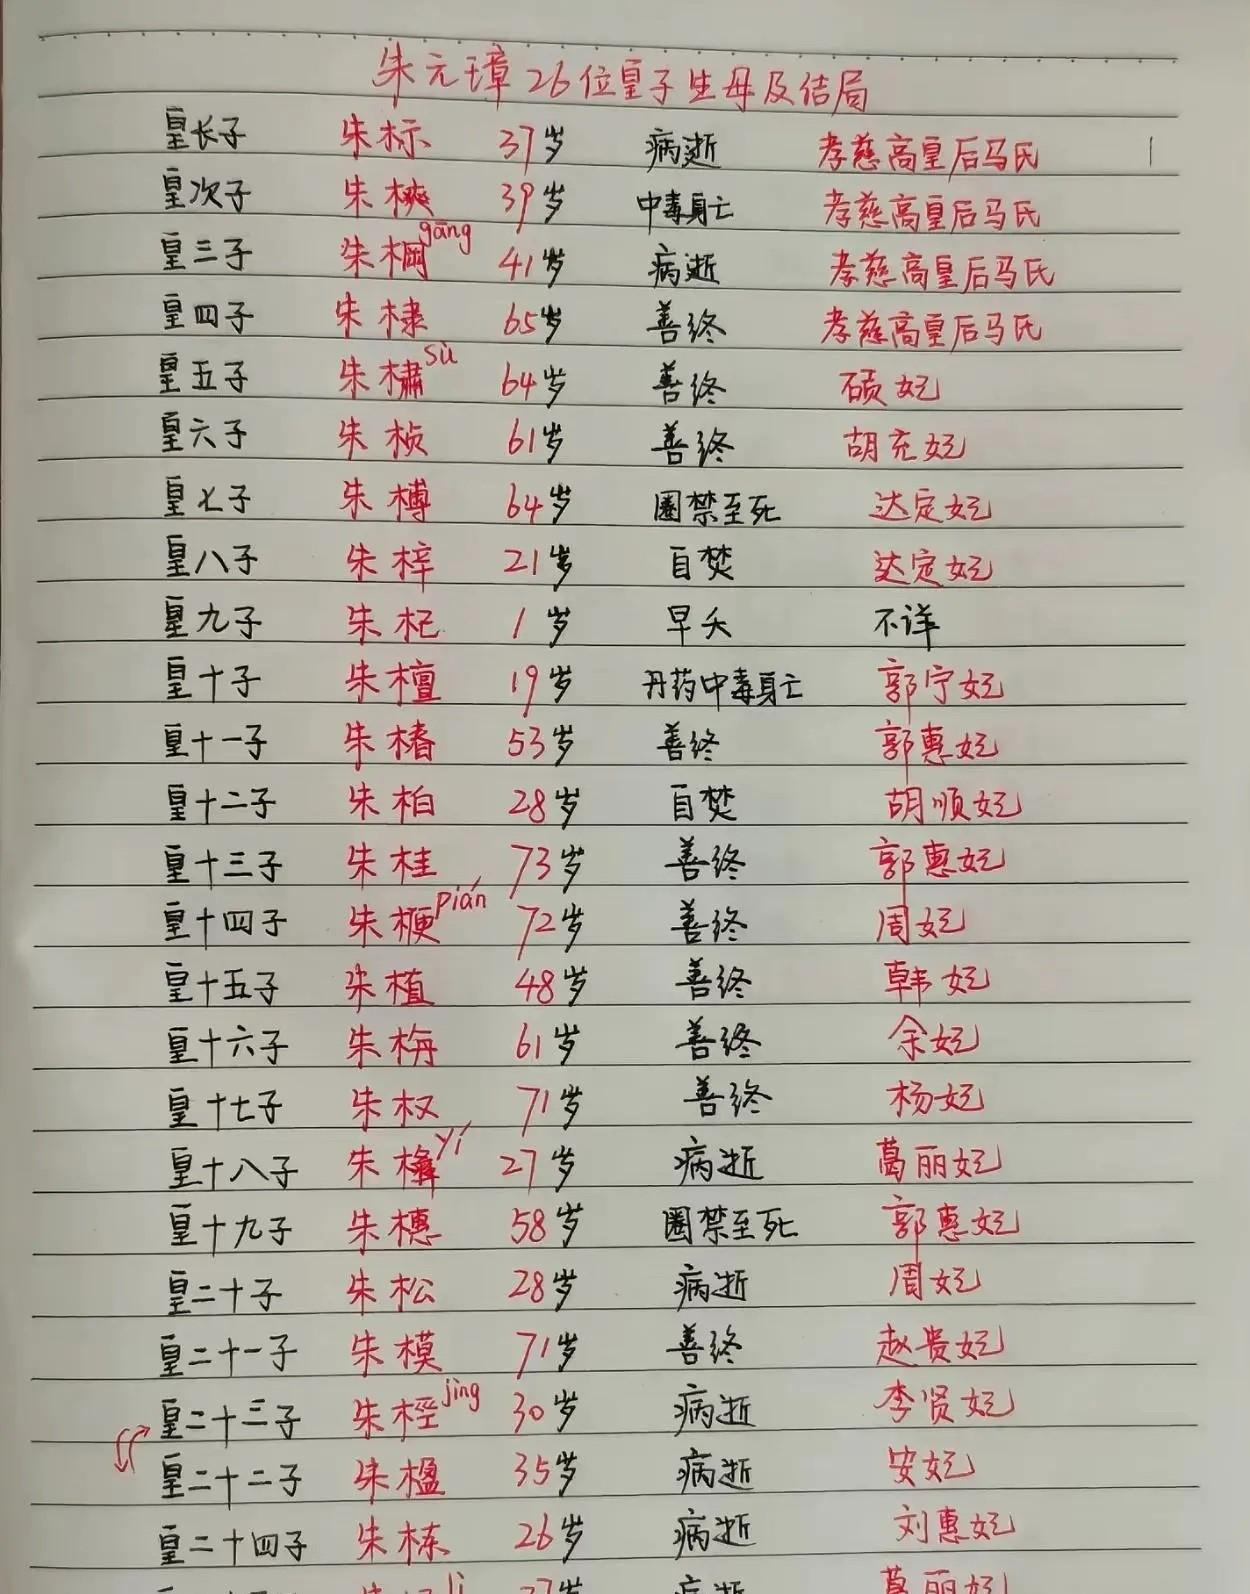 朱元璋26位皇子生母及结局
皇长子 朱标 37岁 病逝 孝慈高皇后马氏
皇次子 朱樉 39岁 中毒身亡 孝慈高皇后马氏
皇三子 朱棡 gāng 41岁 病逝 孝慈高皇后马氏
皇四子 朱棣 65岁 善终 孝慈高皇后马氏
皇五子 朱橚 sù 64岁 善终 硕妃
皇六子 朱桢 61岁 善终 胡充妃
皇七子 朱榑 64岁 圈禁至死 达定妃
皇八子 朱梓 21岁 自焚 达定妃
皇九子 朱杞 1岁 早夭 不详
皇十子 朱檀 19岁 丹药中毒身亡 郭宁妃
皇十一子 朱椿 53岁 善终 郭惠妃
皇十二子 朱柏 28岁 自焚 胡顺妃
皇十三子 朱桂 73岁 善终 郭惠妃
皇十四子 朱楩 pián 72岁 善终 周妃
皇十五子 朱植 48岁 善终 韩妃
皇十六子 朱栴 61岁 善终 余妃
皇十七子 朱权 71岁 善终 杨妃
皇十八子 朱 yí 27岁 病逝 葛丽妃
皇十九子 朱橞 58岁 圈禁至死 郭惠妃
皇二十子 朱松 28岁 病逝 周妃
皇二十一子 朱模 71岁 善终 赵贵妃
皇二十三子 朱桱 jìng 30岁 病逝 李贤妃
皇二十二子 朱楹 35岁 病逝 安妃
皇二十四子 朱栋 26岁 病逝 刘惠妃
葛丽妃